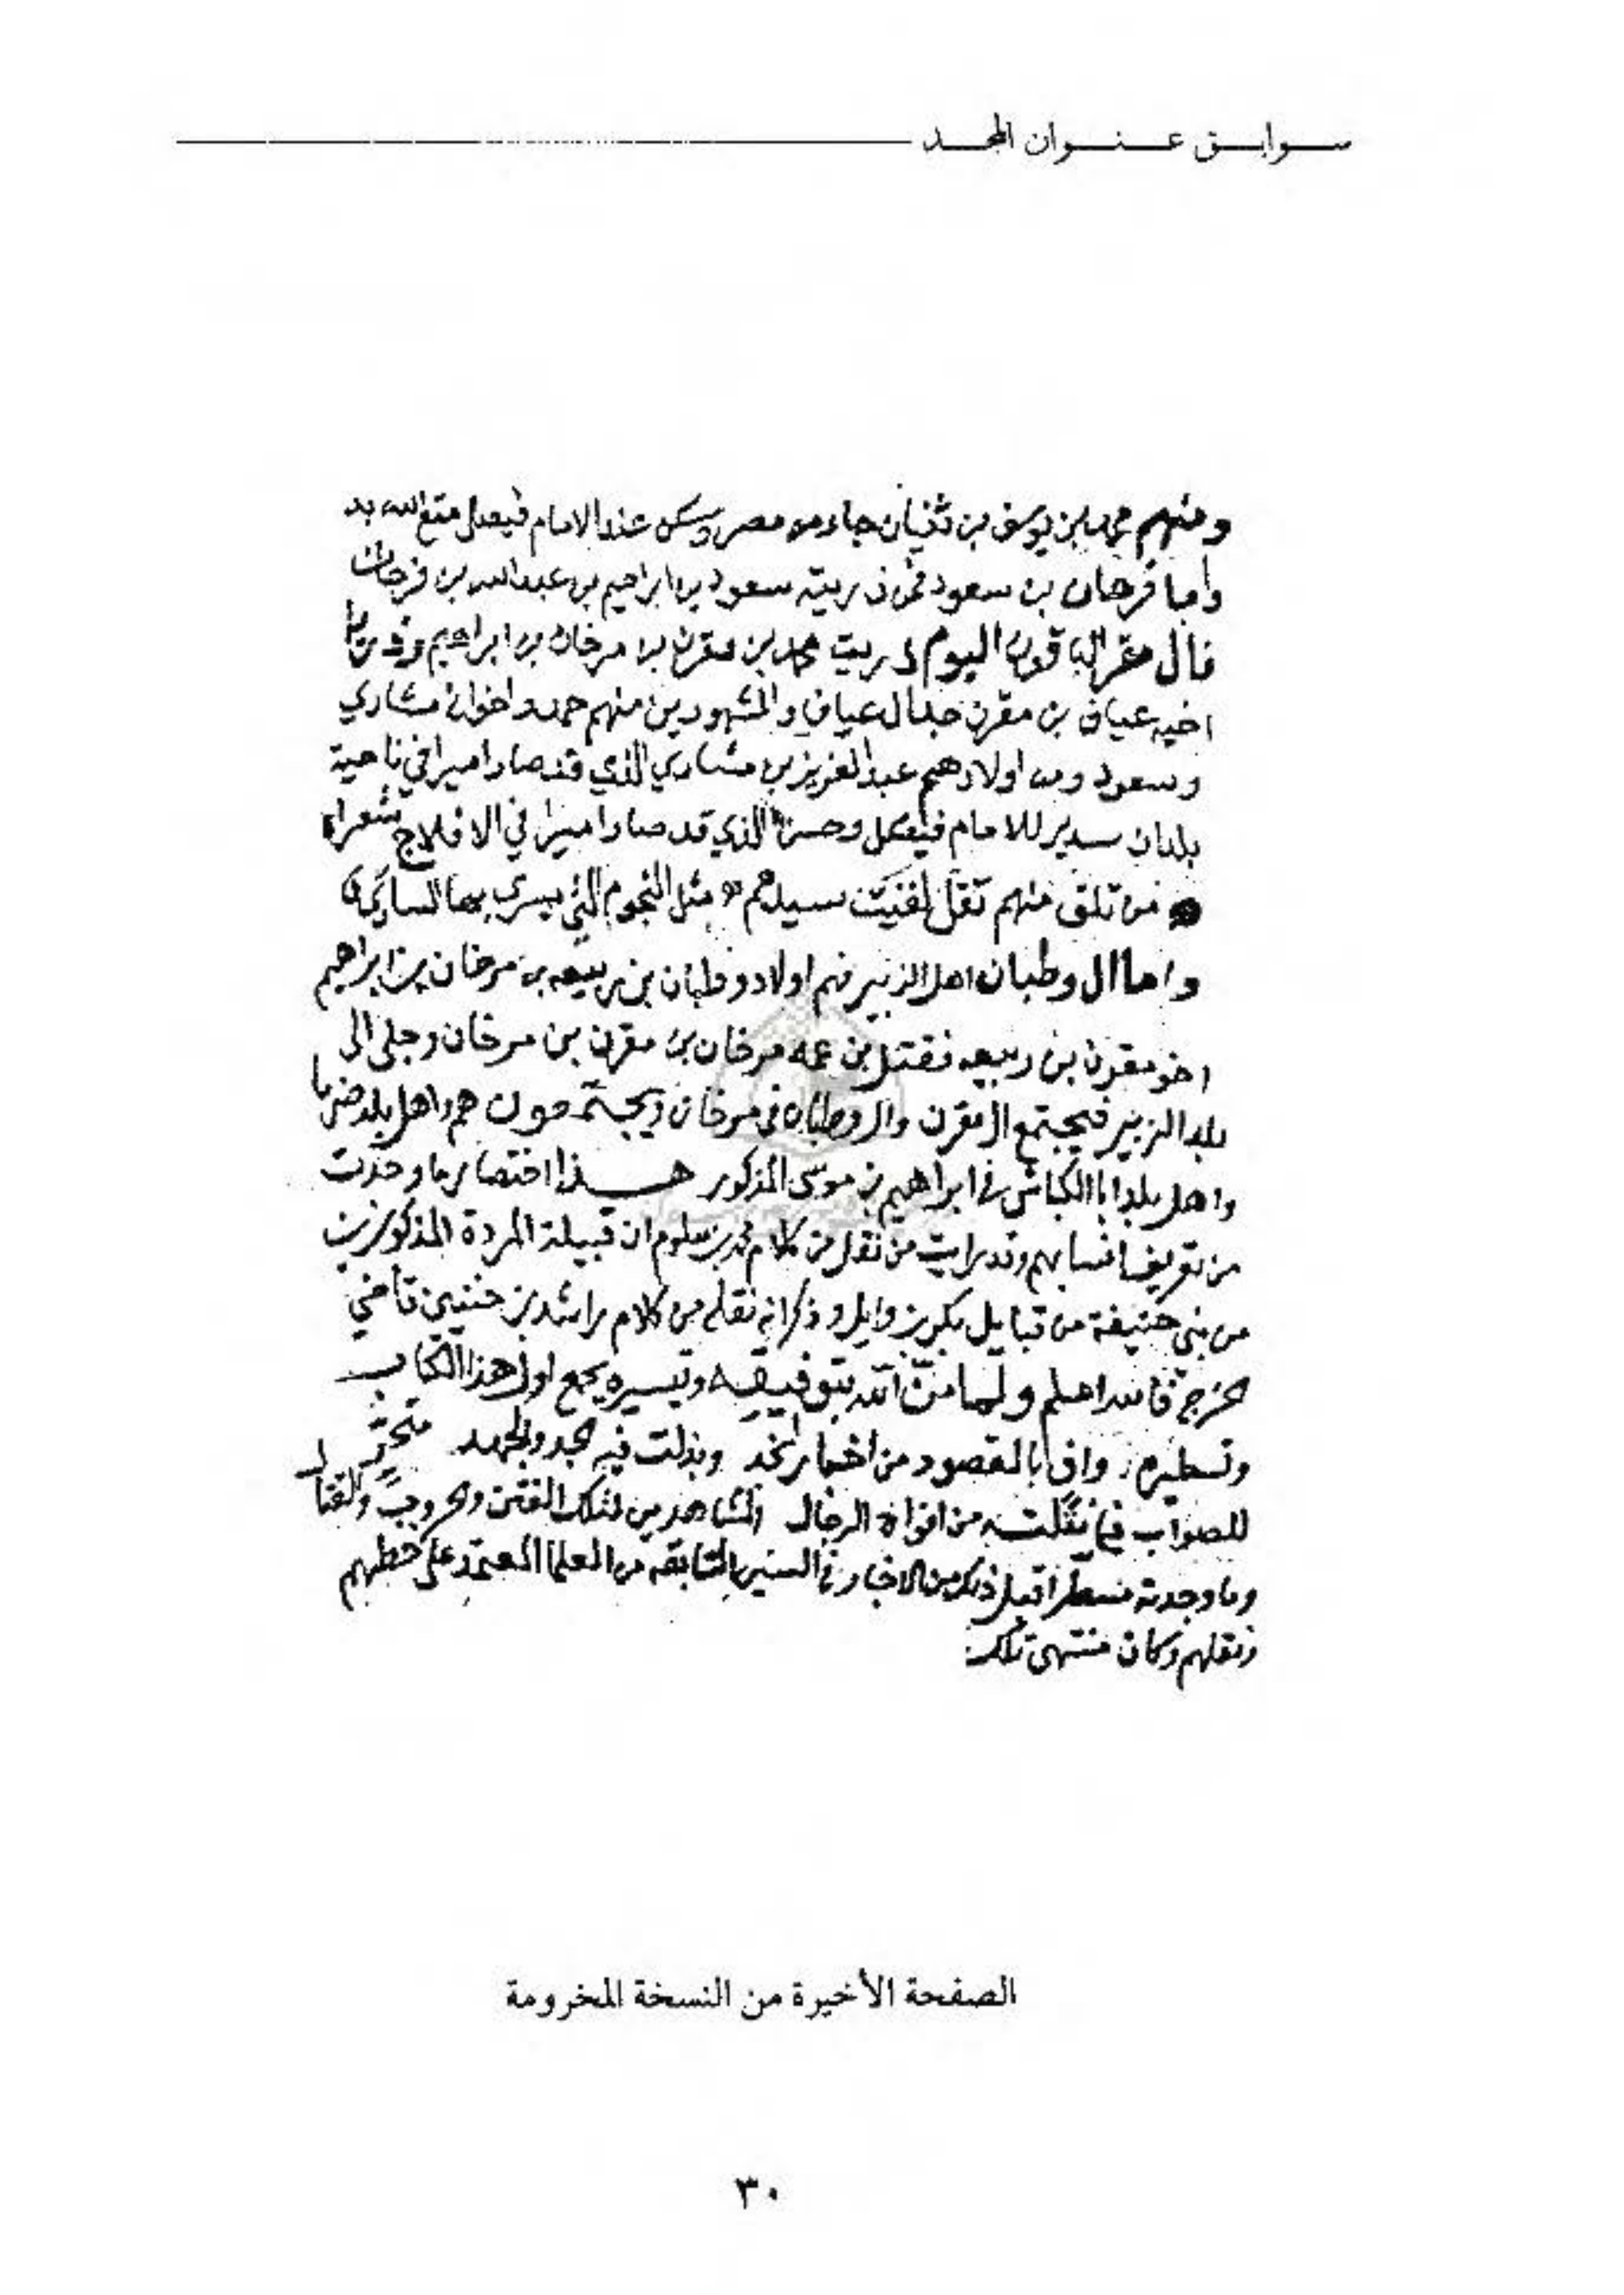 سوابق عنوان المجد
ومنهم محمد بن يوسف بن ثنيان جاء من مصر وسكن عند الامام فيصل متع الله به
واما فرحان بن سعود فمن ذريته سعود بن ابراهيم بن عبدالله بن فرحان
فال مقرن الباقون اليوم ذريت محمد بن مقرن بن مرخان بن ابراهيم وذرية
اخيه عياف بن مقرن جد ال عياف والمشهورين منهم حمد واخوانه مشاري
وسعود ومن اولادهم عبدالعزيز بن مشاري الذي قد صار اميرا في ناحية
بلدان سدير للامام فيصل وحسن الذي قد صار اميرا في الافلاج شعرا
من تلق منهم تقل لقيت سيدهم مثل النجوم التي يسري بها الساري
واما ال وطبان اهل الزبير فهم اولاد وطبان بن ربيعه بن مرخان بن ابراهيم
اخو مقرن بن ربيعه فقتل بن عمه مرخان بن مقرن بن مرخان وجلى الى
بلد الزبير فيجتمع ال مقرن وال وطبان في مرخان ويجتمعون هم واهل بلد ضرما
واهل بلد ابا الكباش في ابراهيم بن موسى المذكور هذا اختصار ما وجدت
من تعريف انسابهم وقد رايت من نقل من كلام محمد بن سلوم ان قبيلة المردة المذكورين
من بني حنيفة من قبايل بكر بن وايل وذكر انه نقله من كلام راشد بن خنين قاضي
الخرج فالله اعلم ولما من الله بتوفيقه وتيسيره بجمع اول هذا الكتاب
وتسطيره وافى بالمقصود من اخبار نجد وبذلت فيه الجد والجهد متحر
للصواب فيما نقلته من افواه الرجال المشاهدين لتلك الفتن والحروب والقتال
وما وجدته مسطرا قبل ذلك من الاخبار في السنين السابقه من العلما المعتمد على خطهم
ونقلهم وكان منتهى تلك
الصفحة الأخيرة من النسخة المخرومة
٣٠